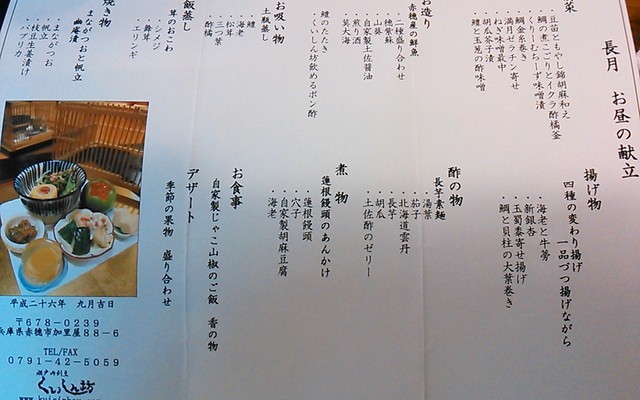 長月 お昼の献立
菜
・豆苗ともやし錦胡麻和え
・鯛の煮こごりとイクラ酢橘釜
・くりーむちーず味噌漬
・鯛金糸巻き
・満月ゼラチン寄せ
・ねぎ味噌最中
・胡瓜芥子漬
・鱧と玉葱の酢味噌
お造り
赤穂産の鮮魚
・二種盛り合わせ
・穂紫蘇
・山葵
・自家製土佐醤油
・煎り酒
・莫大海
・鱧たたき
・くいしん坊飲めるポン酢
お吸い物
土瓶蒸し
・鱧
・海老
・松茸
・三つ葉
・酢橘
飯蒸し
茸のおこわ
・シメジ
・舞茸
・エリンギ
焼き物
まながつおと帆立
幽庵漬
・まながつお
・帆立
・枝豆生姜漬け
・パプリカ
揚げ物
四種の変わり揚げ
一品づつ揚げながら
・海老と牛蒡
・新銀杏
・玉蜀黍寄せ揚げ
・鯛と貝柱の大葉巻き
酢の物
長芋素麺
・湯葉
・茄子
・北海道雲丹
・長芋
・胡瓜
・土佐酢のゼリー
煮物
蓮根饅頭のあんかけ
・蓮根饅頭
・穴子
・自家製胡麻豆腐
・海老
お食事
自家製じゃこ山椒のご飯 香の物
デザート
季節の果物 盛り合わせ
平成二十六年 九月吉日
〒678-0239
兵庫県赤穂市加里屋88-6
TEL/FAX
0791-42-5059
瀬戸内割烹
くいしん坊